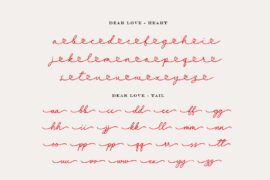 DEAR LOVE - HEART
aebecedeefegeheie
jekelemeneaepegere
seteueuewexeyeze
DEAR LOVE - TAIL
aa bb cc dd ee ff gg
hh ii jj kk ll mm nn
oo pp qq rr ss tt
uu vv ww xx yy zz